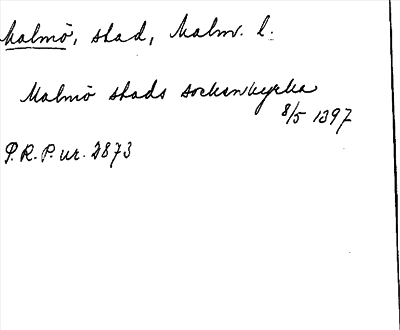 Malmö, stad, Malm. l.
Malmö stads sockenkyrka
8/5 1397
P.R.P. ur. 2873